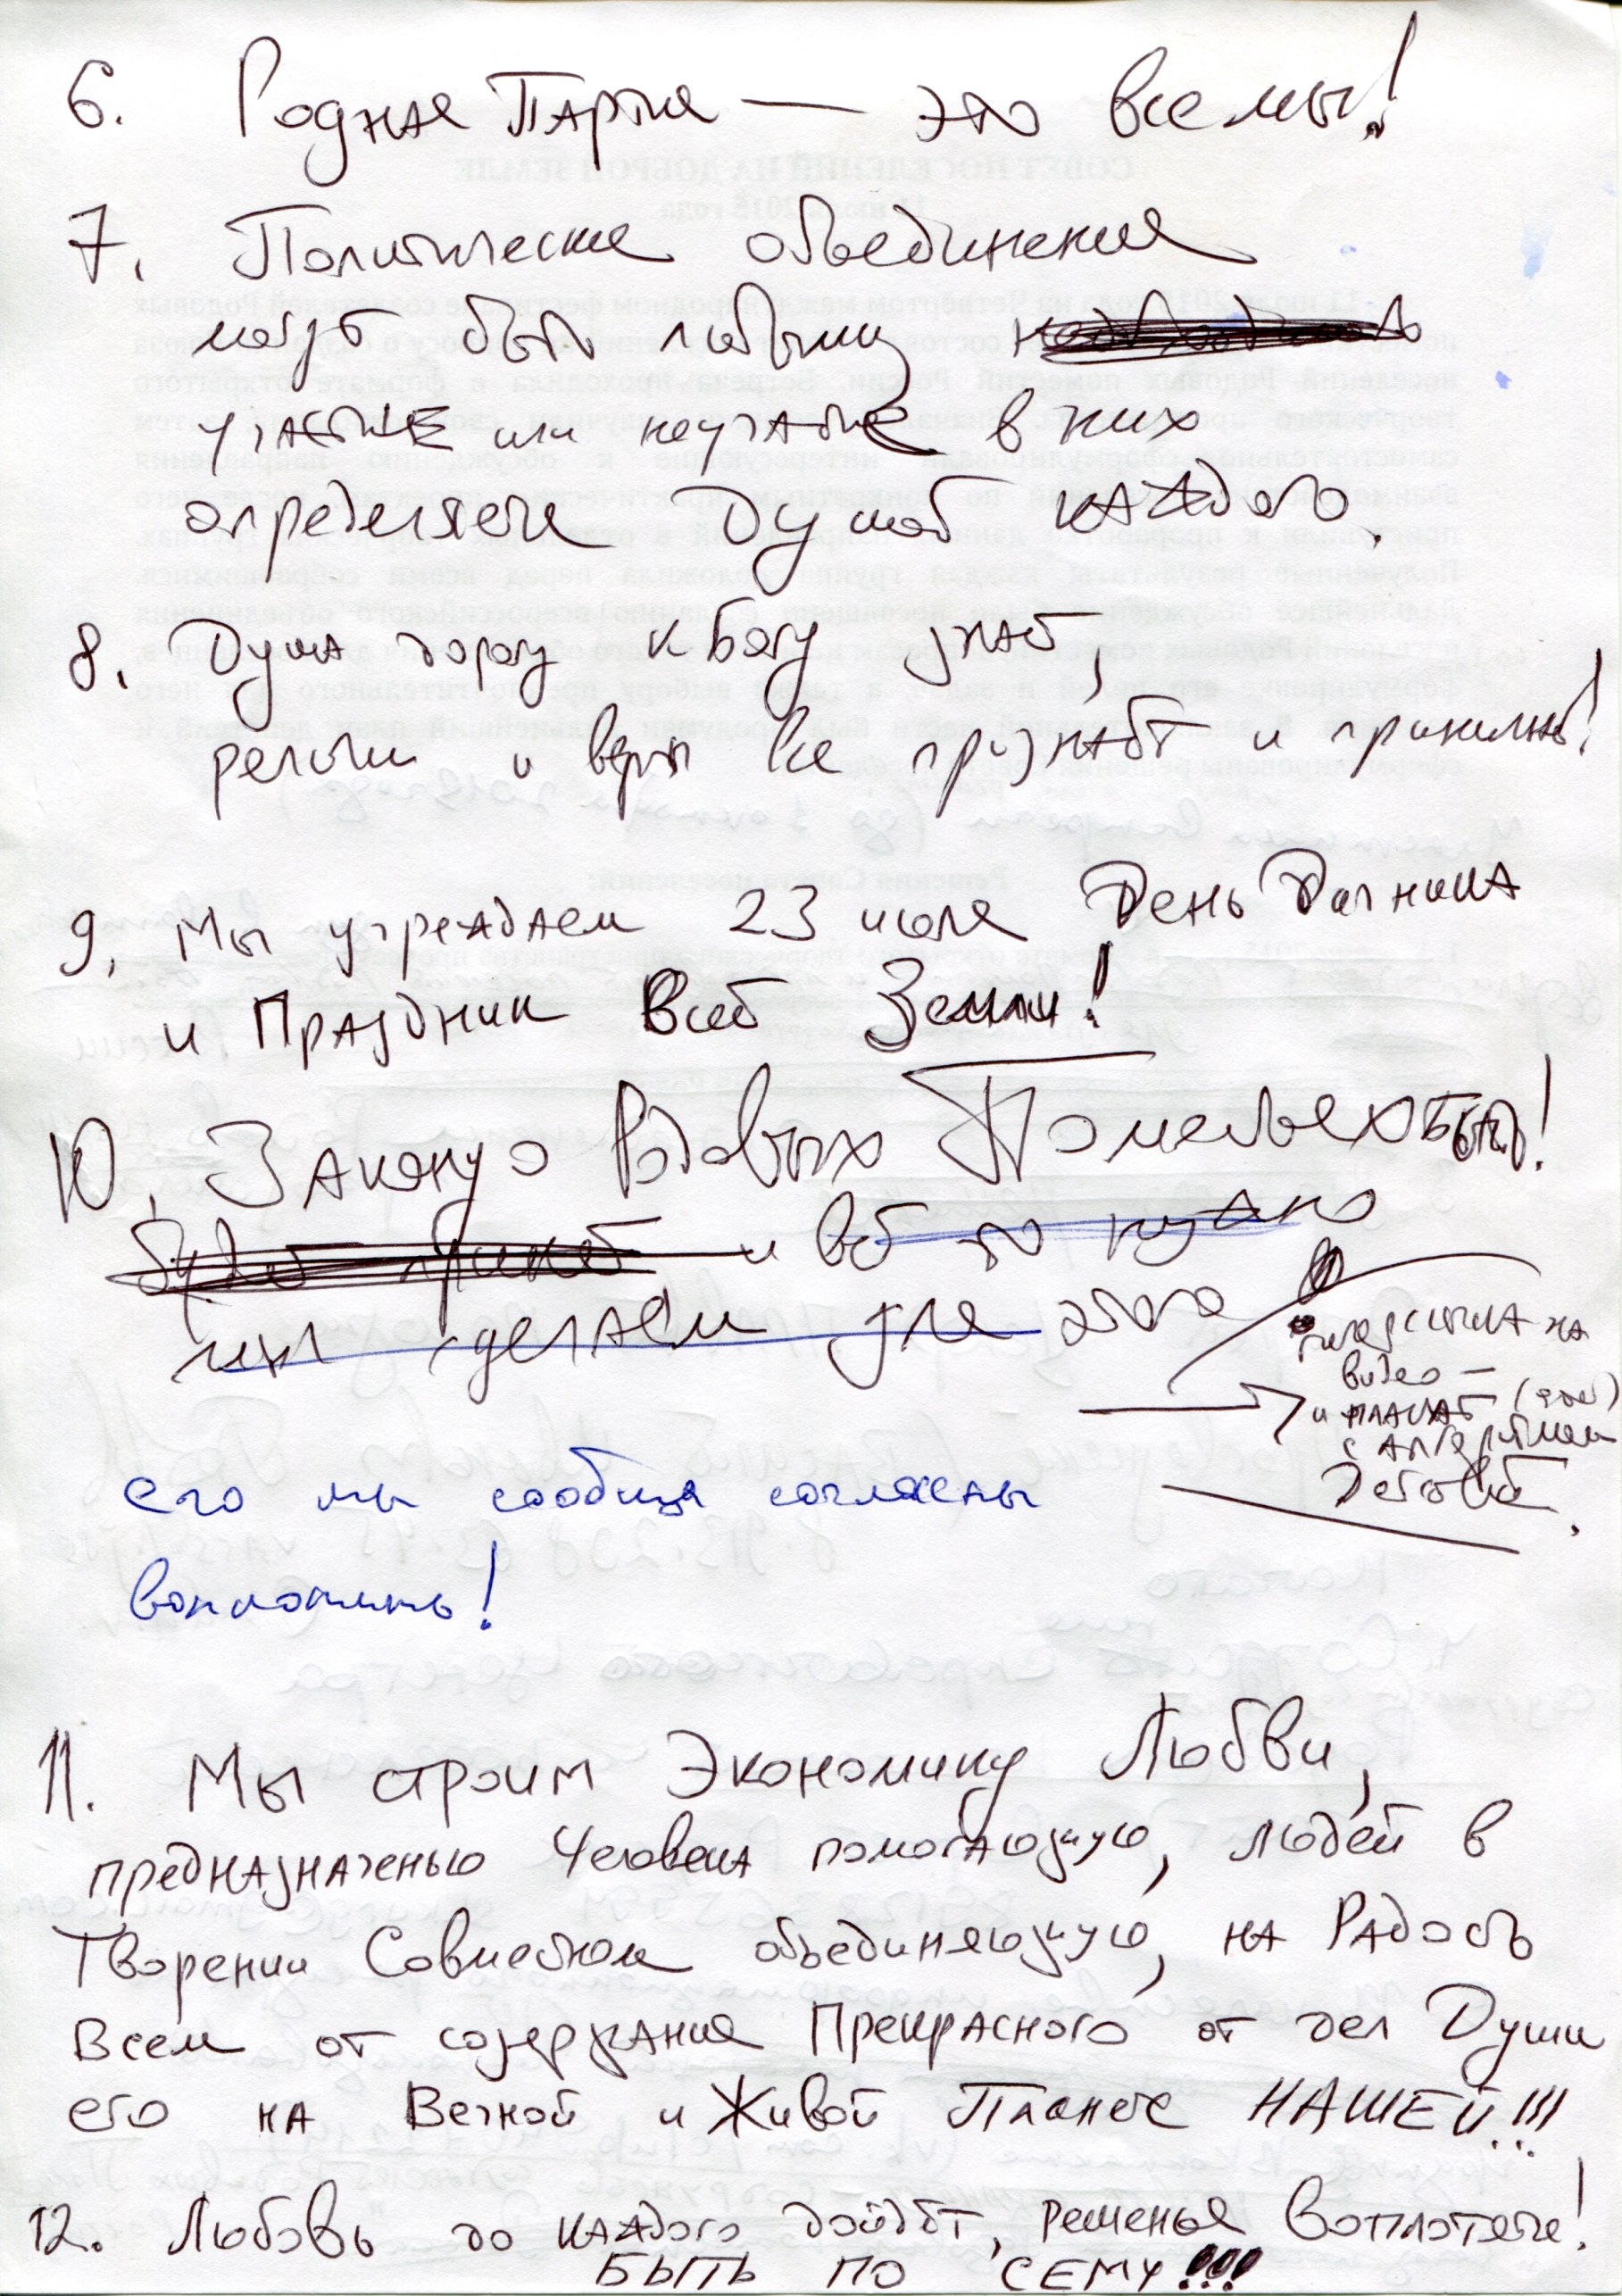 6. Родная Партия — это все мы!
7. Политические объединения
могут быть любыми,
участие или неучастие в них
определяет Душой каждого.
8. Душа дорогу к Богу знает,
религии и веры все признаёт и принимает!
9. Мы учреждаем 23 июля День Дачника
и Праздник Всей Земли!
10. Закону о Родовых Поместьях Быть!
и всё то нужно
мы сделаем для этого
видео —
и плакат
с алгоритмом
действий.
его мы сообща согласны
воплотить!
11. Мы строим Экономику Любви,
предназначенью Человека помогающую, людей в
Творении Совместном объединяющую, на Радость
Всем от созерзания Прекрасного от дел Души
его на Вечной и Живой Планете НАШЕЙ!!!
12. Любовь до каждого дойдёт, решенья воплотятся!
БЫТЬ ПО СЕМУ!!!